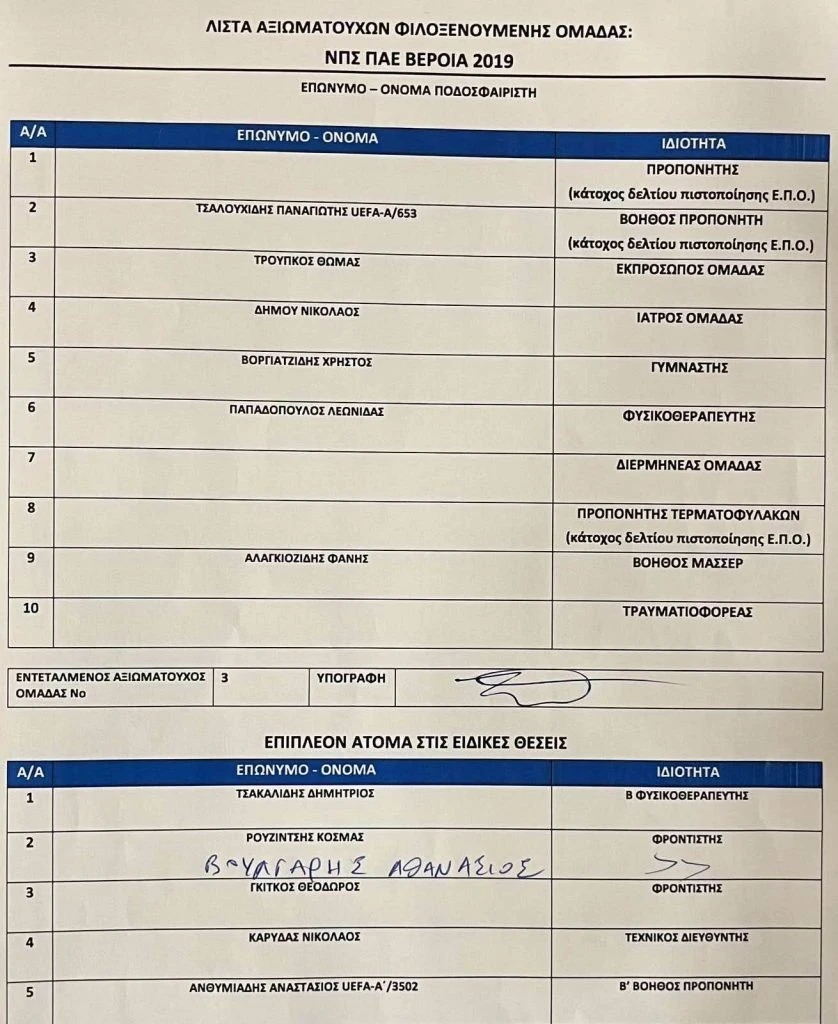 ΛΙΣΤΑ ΑΞΙΩΜΑΤΟΥΧΩΝ ΦΙΛΟΞΕΝΟΥΜΕΝΗΣ ΟΜΑΔΑΣ:
ΝΠΣ ΠΑΕ ΒΕΡΟΙΑ 2019
ΕΠΩΝΥΜΟ – ΟΝΟΜΑ ΠΟΔΟΣΦΑΙΡΙΣΤΗ
Α/Α ΕΠΩΝΥΜΟ - ΟΝΟΜΑ ΙΔΙΟΤΗΤΑ
1 ΠΡΟΠΟΝΗΤΗΣ
(κάτοχος δελτίου πιστοποίησης Ε.Π.Ο.)
2 ΤΣΑΛΟΥΧΙΔΗΣ ΠΑΝΑΓΙΩΤΗΣ UEFA-A/653 ΒΟΗΘΟΣ ΠΡΟΠΟΝΗΤΗ
(κάτοχος δελτίου πιστοποίησης Ε.Π.Ο.)
3 ΤΡΟΥΠΚΟΣ ΘΩΜΑΣ ΕΚΠΡΟΣΩΠΟΣ ΟΜΑΔΑΣ
4 ΔΗΜΟΥ ΝΙΚΟΛΑΟΣ ΙΑΤΡΟΣ ΟΜΑΔΑΣ
5 ΒΟΡΓΙΑΤΖΙΔΗΣ ΧΡΗΣΤΟΣ ΓΥΜΝΑΣΤΗΣ
6 ΠΑΠΑΔΟΠΟΥΛΟΣ ΛΕΩΝΙΔΑΣ ΦΥΣΙΚΟΘΕΡΑΠΕΥΤΗΣ
7 ΔΙΕΡΜΗΝΕΑΣ ΟΜΑΔΑΣ
8 ΠΡΟΠΟΝΗΤΗΣ ΤΕΡΜΑΤΟΦΥΛΑΚΩΝ
(κάτοχος δελτίου πιστοποίησης Ε.Π.Ο.)
9 ΑΛΑΓΚΙΟΖΙΔΗΣ ΦΑΝΗΣ ΒΟΗΘΟΣ ΜΑΣΣΕΡ
10 ΤΡΑΥΜΑΤΙΟΦΟΡΕΑΣ
ΕΝΤΕΤΑΛΜΕΝΟΣ ΑΞΙΩΜΑΤΟΥΧΟΣ 3 ΥΠΟΓΡΑΦΗ
ΟΜΑΔΑΣ Νο
ΕΠΙΠΛΕΟΝ ΑΤΟΜΑ ΣΤΙΣ ΕΙΔΙΚΕΣ ΘΕΣΕΙΣ
Α/Α ΕΠΩΝΥΜΟ - ΟΝΟΜΑ ΙΔΙΟΤΗΤΑ
1 ΤΣΑΚΑΛΙΔΗΣ ΔΗΜΗΤΡΙΟΣ Β ΦΥΣΙΚΟΘΕΡΑΠΕΥΤΗΣ
2 ΡΟΥΖΙΝΤΣΗΣ ΚΟΣΜΑΣ ΦΡΟΝΤΙΣΤΗΣ
ΒΟΥΛΓΑΡΗΣ ΑΘΑΝΑΣΙΟΣ >>
3 ΓΚΙΤΚΟΣ ΘΕΟΔΩΡΟΣ ΦΡΟΝΤΙΣΤΗΣ
4 ΚΑΡΥΔΑΣ ΝΙΚΟΛΑΟΣ ΤΕΧΝΙΚΟΣ ΔΙΕΥΘΥΝΤΗΣ
5 ΑΝΘΥΜΙΑΔΗΣ ΑΝΑΣΤΑΣΙΟΣ UEFA-A΄/3502 Β' ΒΟΗΘΟΣ ΠΡΟΠΟΝΗΤΗ